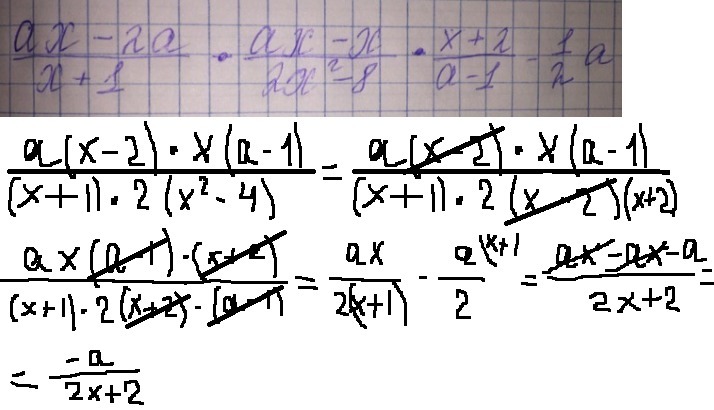 (ax - 2a)/(x + 1) · (ax - x)/(2x² - 8) · (x + 2)/(a - 1) - 1/2 a
a(x - 2) · x(a - 1)/(x + 1) · 2(x² - 4) = a(x - 2) · x(a - 1)/(x + 1) · 2(x - 2)(x+2)
ax(a - 1) · (x + 2)/(x + 1) · 2(x + 2) · (a - 1) = ax/2(x + 1) - a\x+1/2 = ax - ax - a/2x + 2 =
= -a/2x + 2